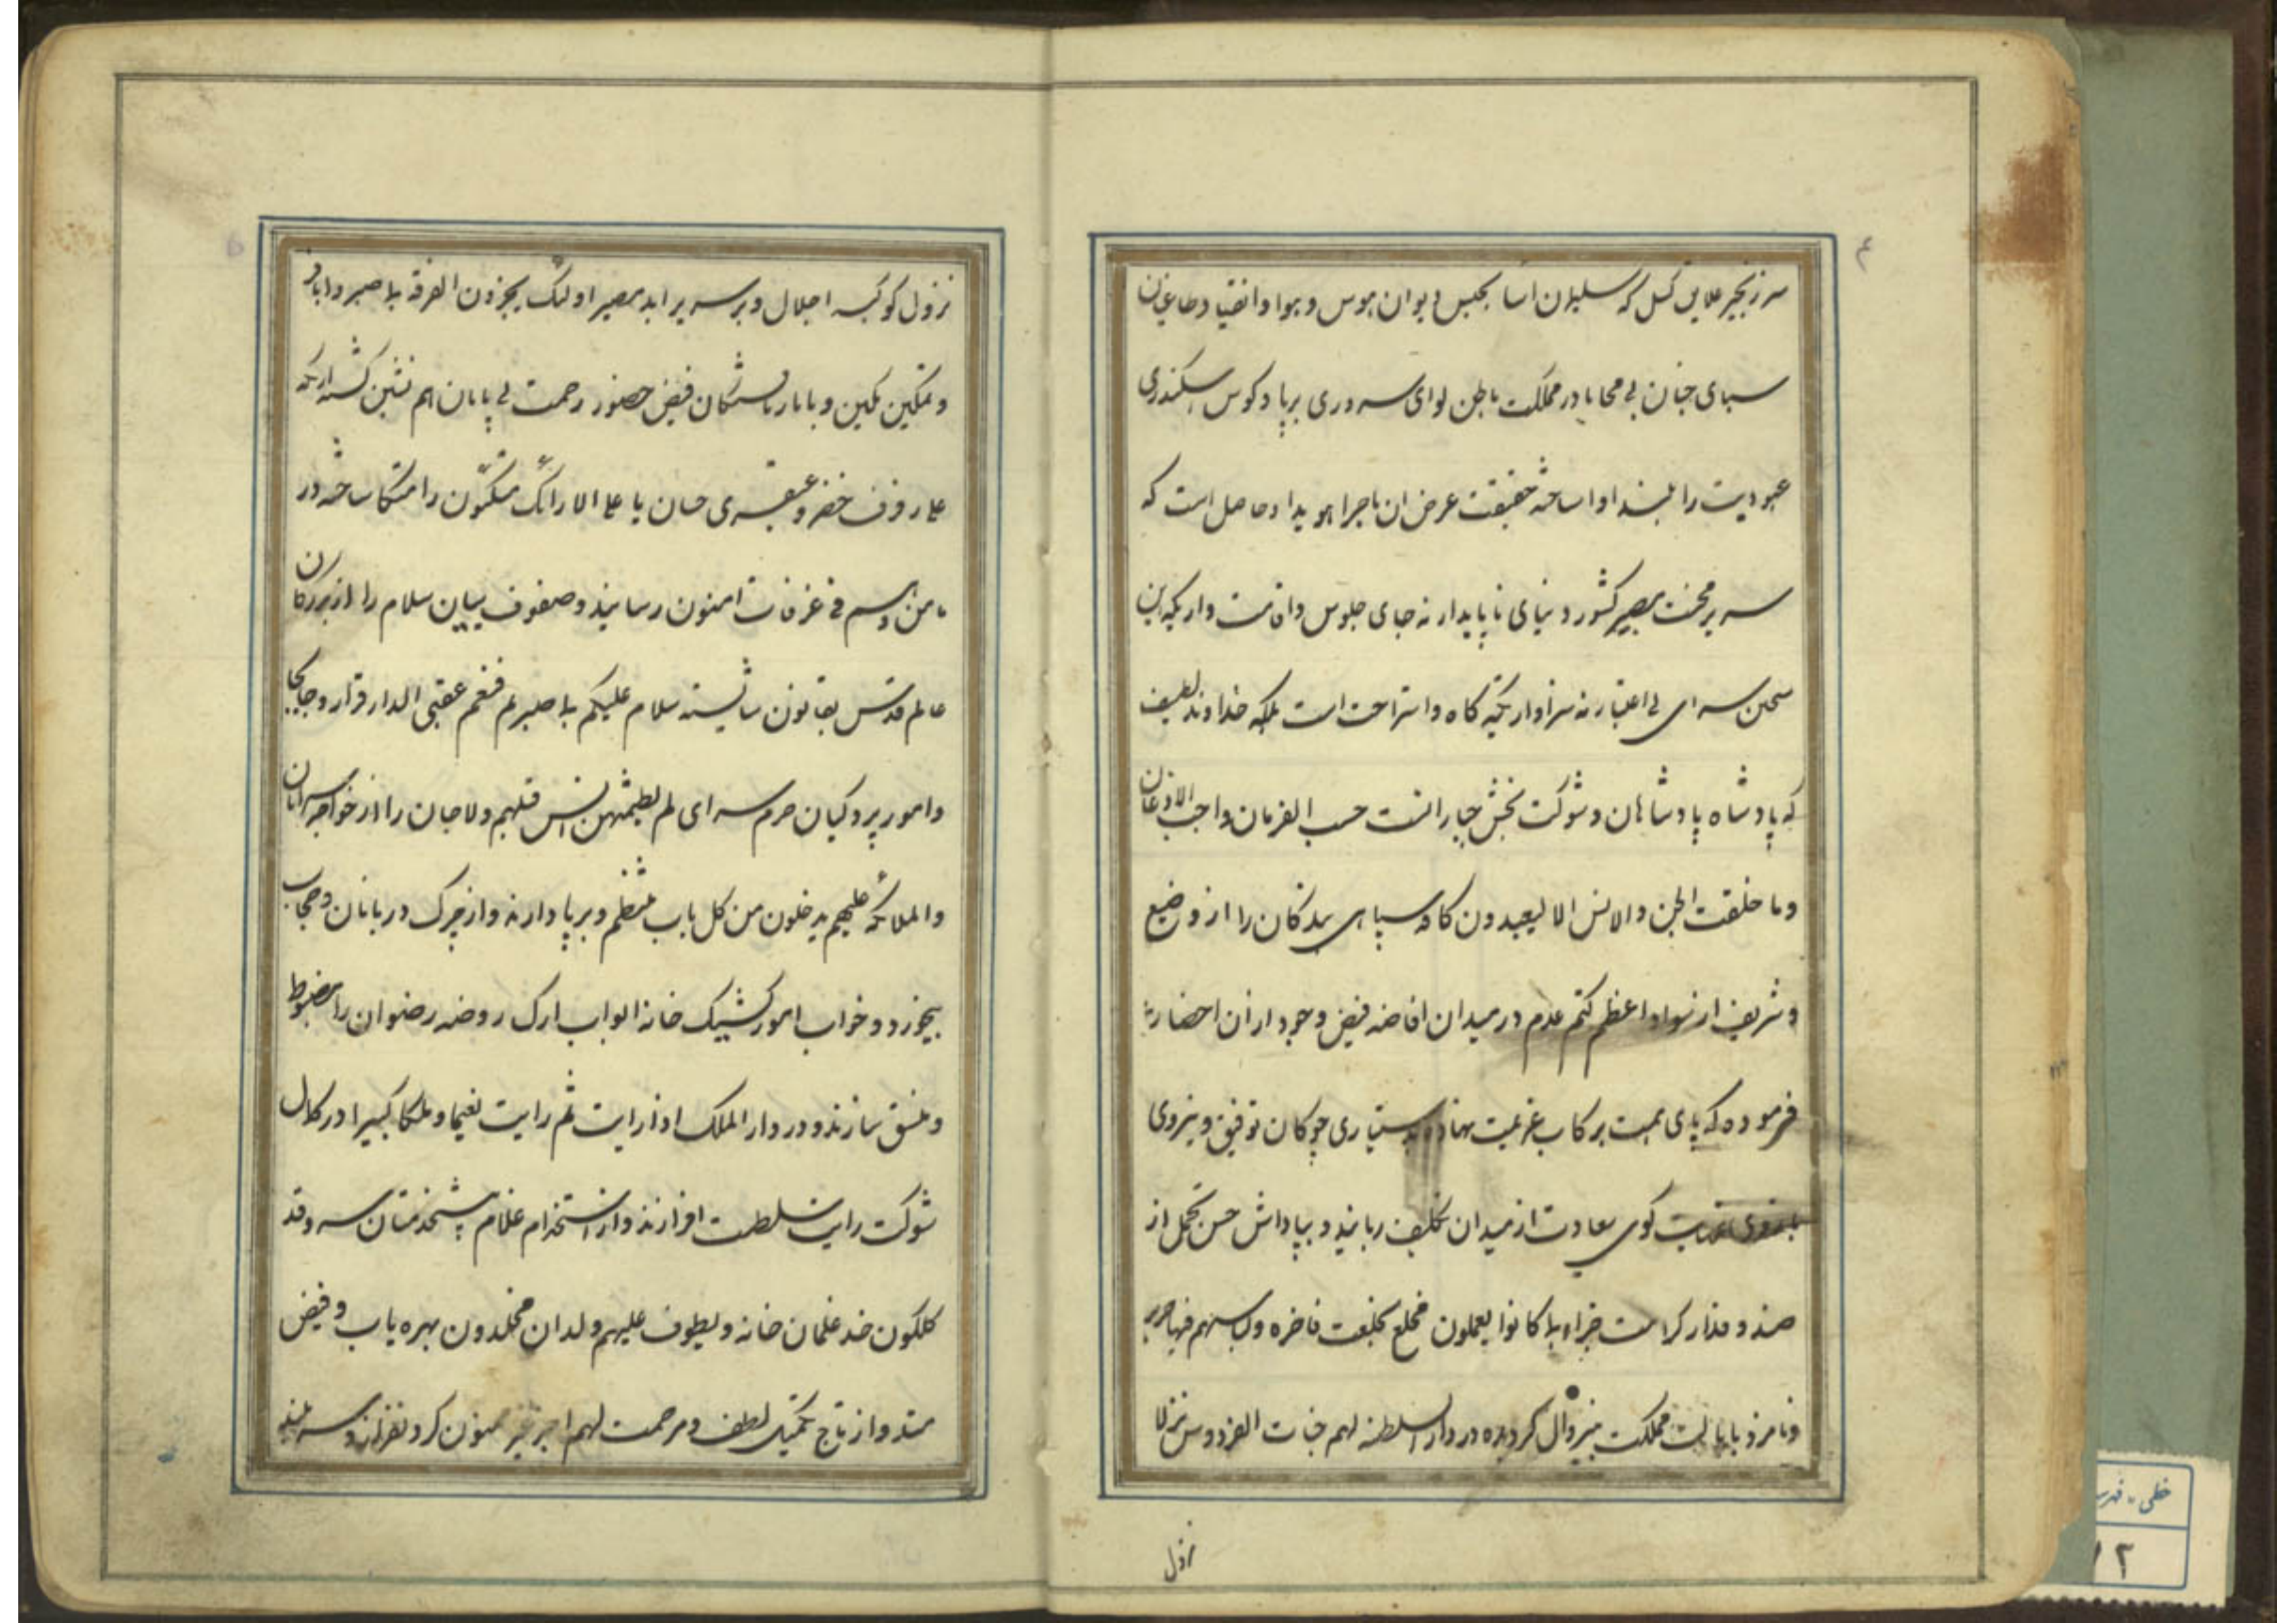 ۴
سر زنجیر علایق کسل که سلیمان آسا بحبس دیوان هوس و هوا و انقیاد طاغیان
سبای جنان بی محابا در مملکت باطن لوای سروری برپا و کوس اسکندری
عبودیت را بلند اوا ساخته حقیقت عرض ان ماجرا هویدا و حاصل است که
سریر محنت مصیر کشور دنیای ناپایدار نه جای جلوس و اقامت و اریکه این
صحن سرای بی اعتبار نه سزاوار تکیه کاه و استراحت است بلکه خداوند لطیف
که پادشاه پادشاهان و شوکت بخش جبار انست حسب الفرمان واجب الاذعان
وما خلقت الجن والانس الا لیعبدون کافه سپاهی بندکان را از وضیع
و شریف از سواد اعظم کتم عدم در میدان افاضه فیض وجود از ان احضار
فرموده که پای همت برکاب عزیمت نهاده بدستیاری چوکان توفیق و نیروی
بازوی کوی سعادت از میدان تکلیف ربایند و بپاداش حسن تحمل از
صندوقدار کرامت جزاء بما کانوا یعملون مخلع بخلعت فاخره ولباسهم فیها حریر
و نامزد بایالت مملکت بیزوال کردیده در دار السلطنه لهم جنات الفردوس نزلا
نزول
نزول کوکبه اجلال و بر سریر ابد مصیر اولئک یجزون الغرفة بما صبروا
و تمکین مکین و با بار یافتگان فیض حضور رحمت بی پایان هم نشین کشته اریکه
علی رفرف خضر و عبقری حسان یا علی الارائک متکئون را متکا ساخته در
مامن وهم فی غرفات امنون رسانیند و صفوف بیان سلام را از بزرکان
عالم قدس بقانون شایسته سلام علیکم بما صبرتم فنعم عقبی الدار قرار و جابجا
و امور پردکیان حرم سرای لم یطمثهن انس قبلهم ولا جان را از خواجه سرایان
والملائکة علیهم یدخلون من کل باب منتظم و برپا دارند و از چرک دربانان و حجاب
بیخورد و خواب امور کشیک خانه ابواب ارک روضه رضوان را مضبوط
و منسق سازند و در دار الملک اذا رایت ثم رایت نعیما وملکا کبیرا در کمال
شوکت رایت سلطنت افرازند و از استخدام غلام پیشخدمتان سروقد
کلکون خد غلمان خانه ویطوف علیهم ولدان مخلدون بهره یاب و فیض
مند و از تاج تکمیل لطف و مرحمت لهم اجر غیر ممنون کردنفراز و سربلند
خطی - فهر
۱۲